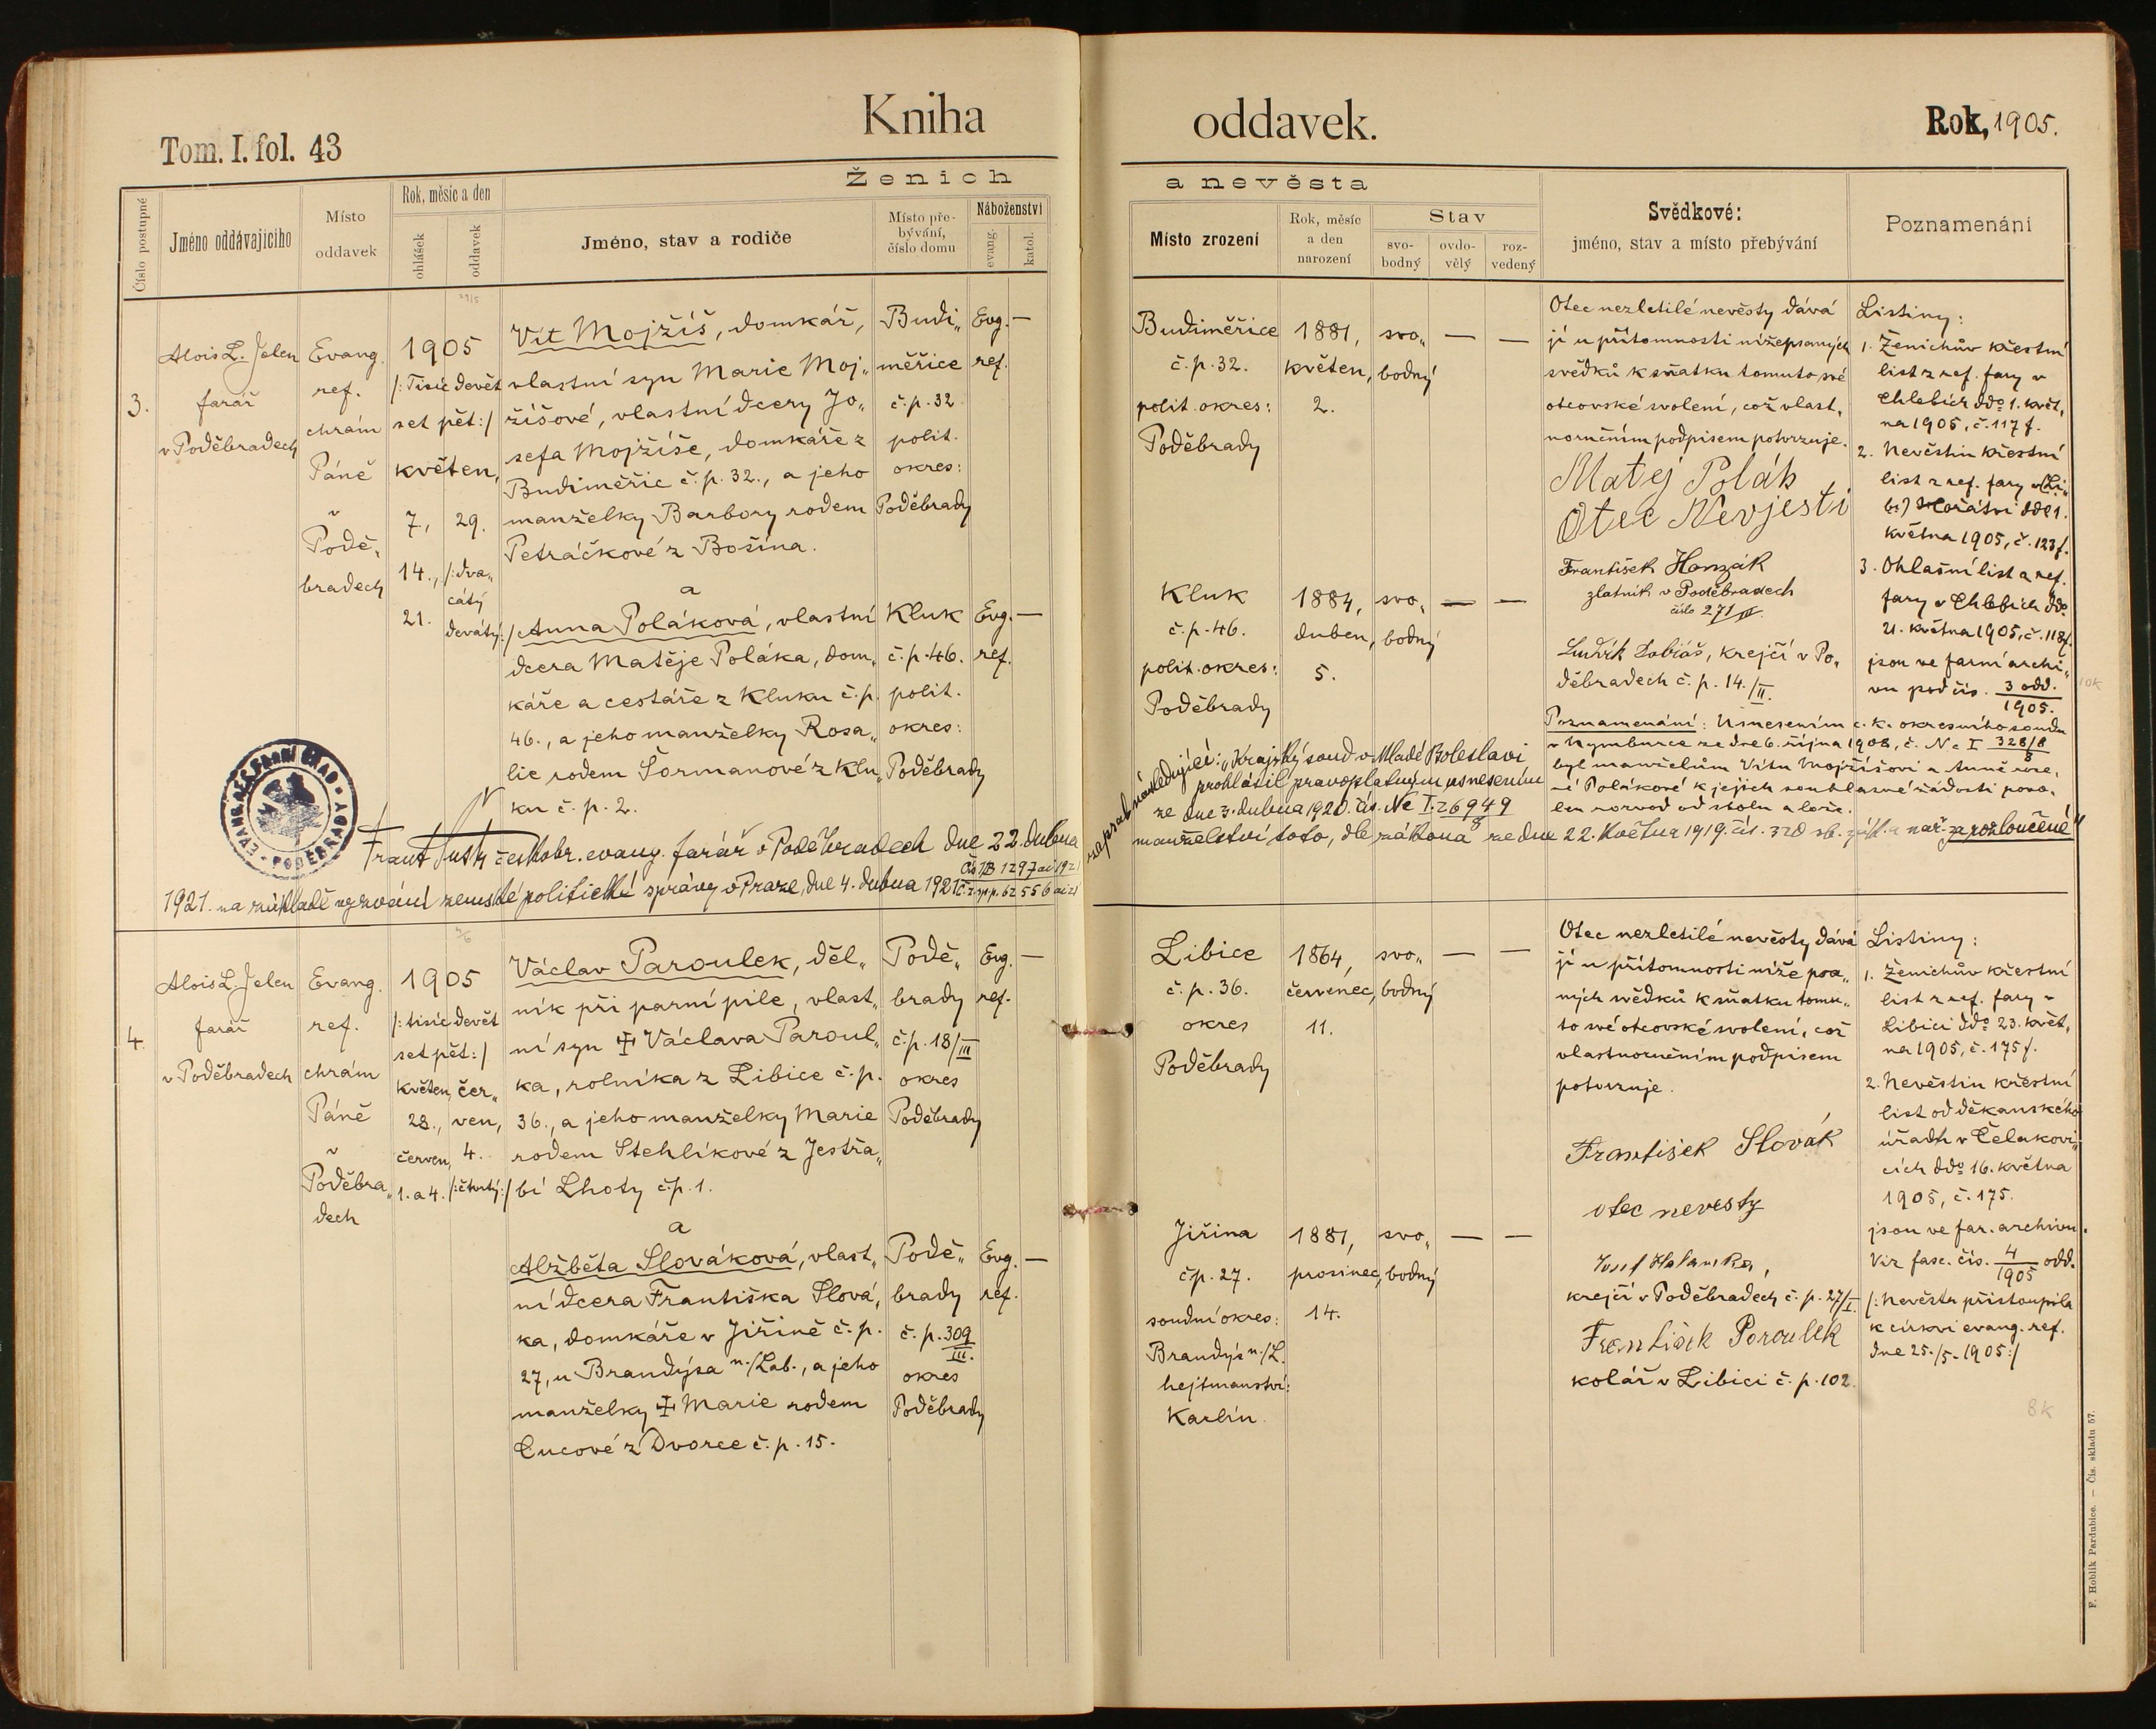 Kniha oddavek.
Tom. I. fol. 43
Rok, 1905.
Ženich a nevěsta
Číslo postupné
Jméno oddávajícího
Místo oddavek
Rok, měsíc a den
ohlášek
oddavek
Jméno, stav a rodiče
Místo přebývání, číslo domu
Náboženství
evang.
katol.
Místo zrození
Rok, měsíc a den narození
Stav
svobodný
ovdovělý
rozvedený
Svědkové:
jméno, stav a místo přebývání
Poznamenání
3.
Alois L. Jelen
farář
v Poděbradech
Evang.
ref.
chrám
Páně
v
Podě„
bradech
1905
/: Tisíc devět
set pět :/
květen,
7,
14.,
21.
29.
/: dva„
cátý
devátý :/
Vít Mojžíš, domkář,
vlastní syn Marie Moj„
žíšové, vlastní dcery Jo„
sefa Mojžíše, domkáře z
Budiměřic č. p. 32., a jeho
manželky Barbory rodem
Petráčkové z Bošína.
a
Anna Poláková, vlastní
dcera Matěje Poláka, dom„
káře a cestáře z Kluku č. p.
46., a jeho manželky Rosa„
lie rodem Šormanové z Klu„
ku č. p. 2.
Budi„
měřice
č. p. 32
polit.
okres:
Poděbrady
Evg. —
ref.
Kluk
č. p. 46.
polit.
okres:
Poděbrady
Evg. —
ref.
Budiměřice
č. p. 32.
polit. okres:
Poděbrady
1881,
květen,
2.
svo„
bodný
— —
Kluk
č. p. 46.
polit. okres:
Poděbrady
1884,
duben,
5.
svo„
bodný
— —
Otec nezletilé nevěsty dává
jí u přítomnosti nížepsaných
svědků k sňatku tomuto své
otcovské svolení, což vlast„
noručním podpisem potvrzuje.
Matěj Polák
Otec Nevjesti
František
zlatník v Poděbradech
číslo 271/II.
Ludvík Tobiáš, krejčí v Po„
děbradech č. p. 14./II.
Poznamenání: Usnesením c. k. okresního soudu
v Nymburce ze dne 6. října 1908, č. Nc I 328/8
byl manželům Vítu Mojžíšovi a Anně roze„
né Polákové k jejich souhlasné žádosti povo„
len rozvod od stolu a lože.
Listiny:
1. Ženichův křestní
list z ref. fary v
Chlebích ddo 1. květ„
na 1905, č. 117 f.
2. Nevěstin křestní
list z ref. fary v (Li„
bi) Hořátvi dde 1.
května 1905, č. 123 f.
3. Ohlašní list z ref.
fary v Chlebích ddo
21. května 1905, č. 118 f.
jsou ve farní archi„
vu pod čís. 3 odd.
1905.
EVANG. REF. FARNÍ ÚŘAD • PODĚBRADY •
českobr. evang. farář v Poděbradech dne 22. dubna
1921. na základě vyzvání zemské politické správy v Praze, dne 4. dubna 1921
zapsal následující: „Krajský soud v Mladé Boleslavi
prohlásil pravoplatným usnesením
ze dne 3. dubna 1920. čís. Nc I. 269 49/8
manželství toto, dle zákona ze dne 22. května 1919. čís. 320 sb. zák. a nař. za rozloučené"
4.
Alois L. Jelen
farář
v Poděbradech
Evang.
ref.
chrám
Páně
v
Poděbra„
dech
1905
/: tisíc devět
set pět :/
květen,
28.,
červen,
1. a 4.
čer„
ven,
4.
/: čtvrtý :/
Václav Paroulek, děl„
ník při parní pile, vlast„
ní syn ‡ Václava Paroul„
ka, rolníka z Libice č. p.
36., a jeho manželky Marie
rodem Stehlíkové z Jestřa„
bí Lhoty č. p. 1.
a
Alžběta Slováková, vlast„
ní dcera Františka Slová„
ka, domkáře v Jiřině č. p.
27, u Brandýsa n./Lab., a jeho
manželky ‡ Marie rodem
Cucové z Dvorce č. p. 15.
Podě„
brady
č. p. 18/III
okres
Poděbrady
Evg. —
ref.
Podě„
brady
č. p. 309
III.
okres
Poděbrady
Evg. —
ref.
Libice
č. p. 36.
okres
Poděbrady
1864,
červenec,
11.
svo„
bodný
— —
Jiřina
č. p. 27.
soudní okres:
Brandýs n./L.
hejtmanství:
Karlín.
1881,
prosinec,
14.
svo„
bodný
— —
Otec nezletilé nevěsty dává
jí u přítomnosti níže psa„
ných svědků k sňatku tomu„
to své otcovské svolení, což
vlastnoručním podpisem
potvrzuje.
František Slovák
otec nevesty
krejčí v Poděbradech č. p. 27/I.
František Paroulek
kolář v Libici č. p. 102.
Listiny:
1. Ženichův křestní
list z ref. fary v
Libici ddo 23. květ„
na 1905, č. 175 f.
2. Nevěstin křestní
list od děkanského
úřadu v Čelakovi„
cích ddo 16. května
1905, č. 175.
jsou ve far. archivu.
Viz fasc. čís. 4/1905 odd.
/: Nevěsta přistoupila
k církvi evang. ref.
dne 25./5. 1905 :/
8k
F. Hoblík Pardubice. — Čís. skladu 57.